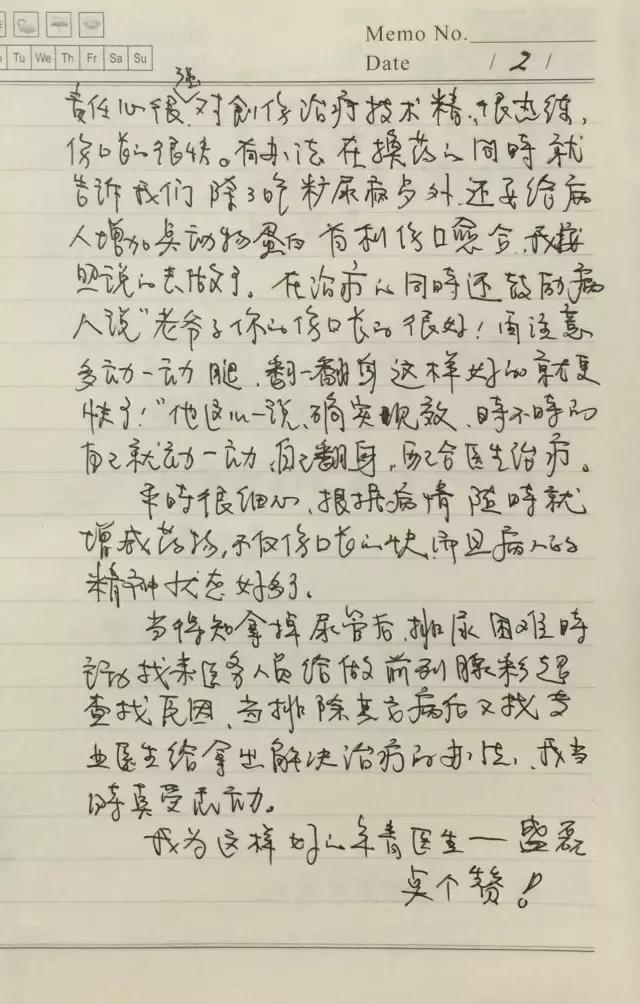 Memo No.
Tu We Th Fr Sa Su
Date / 2 /
责任心很强,对创伤治疗技术精、很熟练,
伤口长的很快。有办法在换药的同时就
告诉我们除了吃糖尿病点外、还要给病
人增加点动物蛋白有利伤口愈合,我按
照说的去做了。在治疗的同时还鼓励病
人说"老爷子你的伤口长的很好!再注意
多动一动腿、翻一翻身这样好的就更
快了!"他这么一说、确实现效、时不时的
自己就动一动、自己翻身,配合医生治疗。
平时很细心、根据病情随时就
增减药物,不仅伤口长的快、而且病人的
精神状态好多了。
当得知拿掉尿管后、排尿困难时
主动找来医务人员给做前列腺彩超
查找原因、当排除其它病后又找专
业医生给拿出解决治疗的办法、我当
时真受感动。
我为这样好的年青医生——盛磊
点个赞!